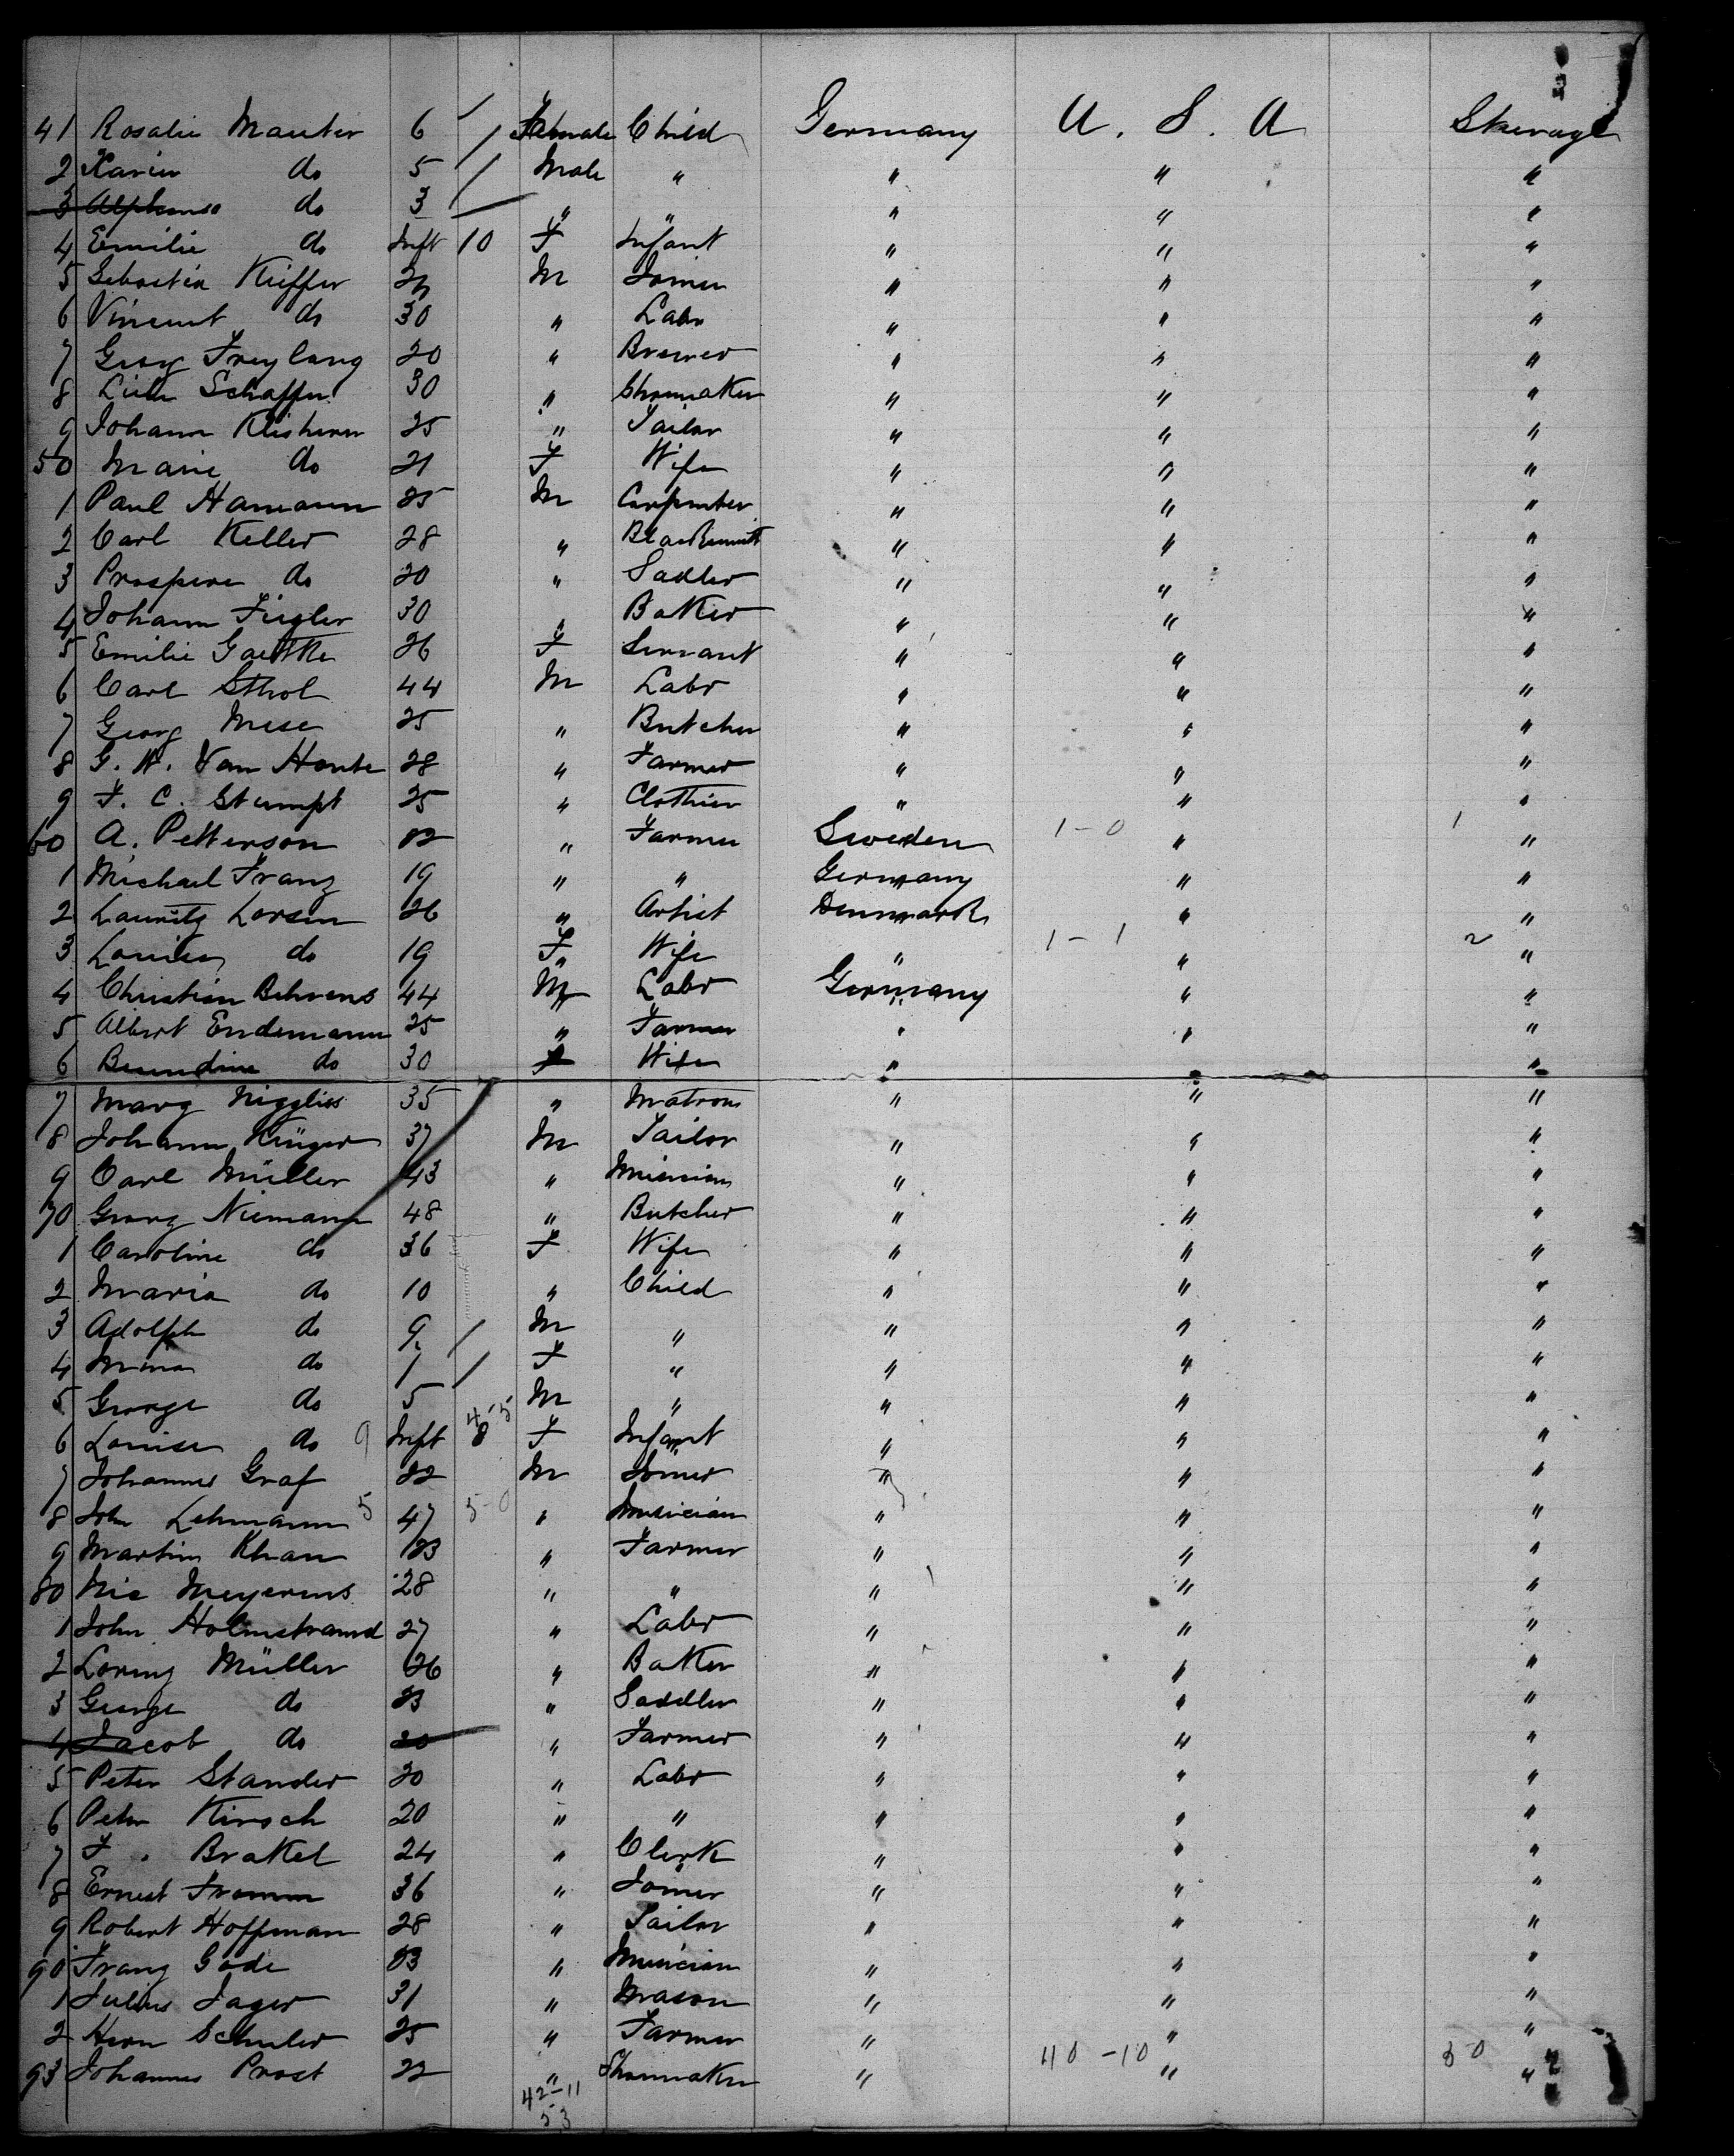 41 Rosalie Mauter 6 / Female Child Germany U. S. A Steerage
2 Xavier do 5 / Male " " " "
3 Alphonse do 3 / " " " " "
4 Emilie do Inft 10 F Infant " " "
5 Sebastia Kieffer M Joiner " " "
6 Vincent do 30 " Labr " " "
7 Georg Freylang 20 " Brewer " " "
8 Schaffer 30 " Shoemaker " " "
9 Johann 25 " Tailor " " "
50 Marie do 21 F Wife " " "
1 Paul Hamann 25 M Carpenter " " "
2 Carl Keller 28 " Blacksmith " " "
3 Prospere do 20 " Sadler " " "
4 Johann Fiegler 30 " Baker " " "
5 Emilie Gaethke 26 F Servant " " "
6 Carl Sthol 44 M Labr " " "
7 Georg Mese 25 " Butcher " " "
8 G. H. Van Houte 28 " Farmer " " "
9 F. C. Stumpt 25 " Clothier " " "
60 A. Petterson 22 " Farmer Sweden 1-0 " 1 "
1 Michael Franz 19 " " Germany " "
2 Lauritz Lorsen 26 " Artist Denmark " "
3 Louisa do 19 F Wife " 1-1 " 2 "
4 Christian Behrens 44 M Labr Germany " "
5 Albert Endemann 25 " Farmer " " "
6 do 30 F Wife " " "
7 Marg Nigglis 35 " Matron " " "
8 Johann Krüger 37 M Tailor " " "
9 Carl Müller 43 " Musician " " "
70 Georg Niemann 48 " Butcher " " "
1 Caroline do 36 F Wife " " "
2 Maria do 10 " Child " " "
3 Adolph do 9 / M " " " "
4 Mina do 1 / F " " " "
5 George do 5 4-5 M " " " "
6 Louisa do 9 Inft 8 F Infant " " "
7 Johannes Graf 22 M Joiner " " "
8 John Lehmann 5 47 5-0 " Musician " " "
9 Martin Khan 23 " Farmer " " "
80 Nic Meyerens 28 " " " " "
1 John Holmstrand 27 " Labr " " "
2 Lorenz Müller 26 " Baker " " "
3 George do 23 " Saddler " " "
4 Jacob do 20 " Farmer " " "
5 Peter Stander 20 " Labr " " "
6 Peter Kirsch 20 " " " " "
7 F. Brakel 24 " Clerk " " "
8 Ernest Fromm 36 " Joiner " " "
9 Robert Hoffman 28 " Tailor " " "
90 Franz Gode 23 " Musician " " "
1 Julius Jager 31 " Mason " " "
2 Herm Schuler 25 " Farmer " " "
93 Johannes Prost 22 " Shoemaker " 40-10 " 50 "
42-11
53